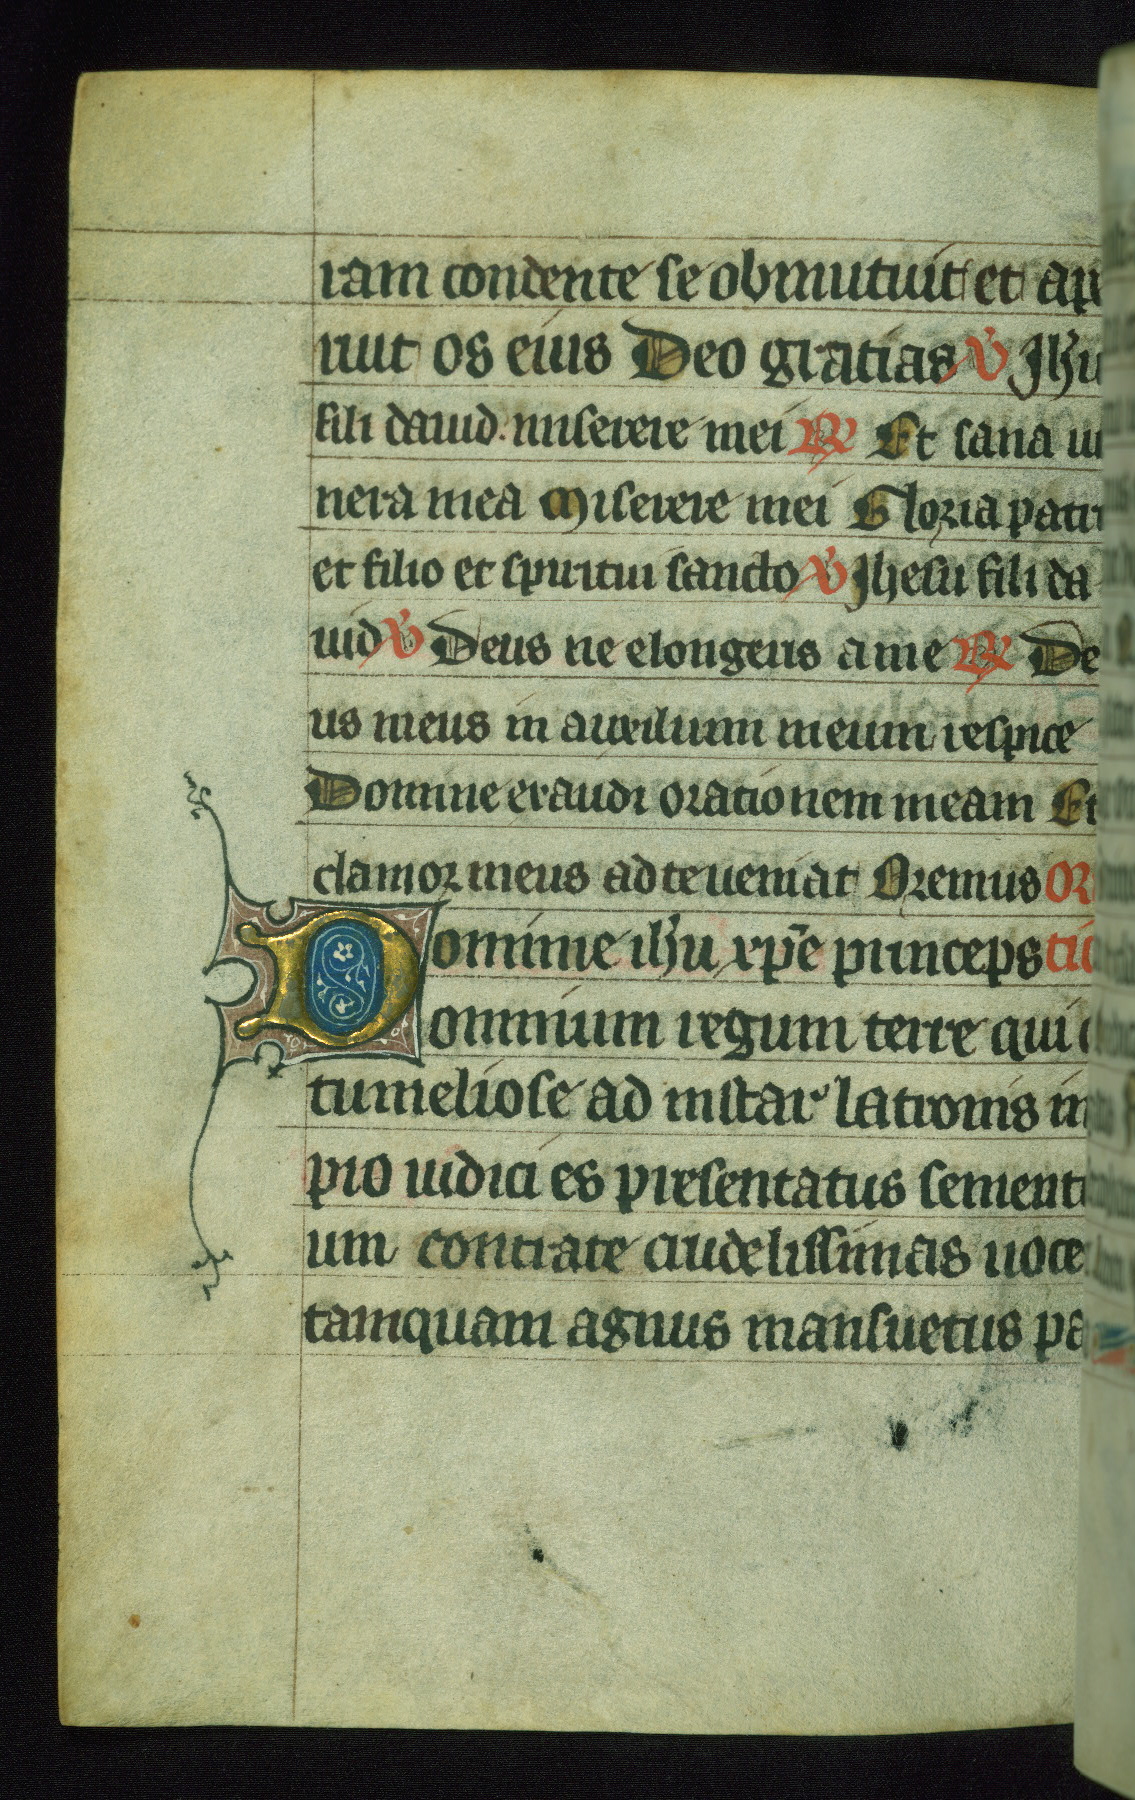 ram condente se obmutuit et ape
ruit os eius Deo gratias ℣ Jhu
fili dauid. miserere mei ℟ Et sana uul
nera mea Miserere mei Gloria patri
et filio et spiritui sancto ℣ Jhesu fili da
uid ℣ Deus ne elongeris a me ℟ De
us meus in auxilium meum respice
Domine exaudi orationem meam Et
clamor meus ad te ueniat Oremus OR
omine ihu xpe princeps
omnium regum terre qui
tumeliose ad instar latronis in
pio iudici es presentatus
um contra te crudelissimas uoce
tamquam agnus mansuetus pa